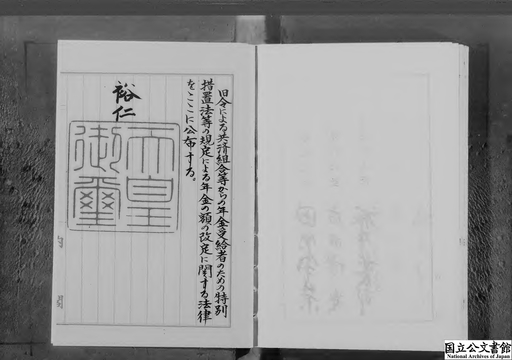 旧令による共済組合等からの年金受給者のための特別
措置法等の規定による年金の額の改定に関する法律
をここに公布する。
裕仁
天皇
御璽
国立公文書館
National Archives of Japan